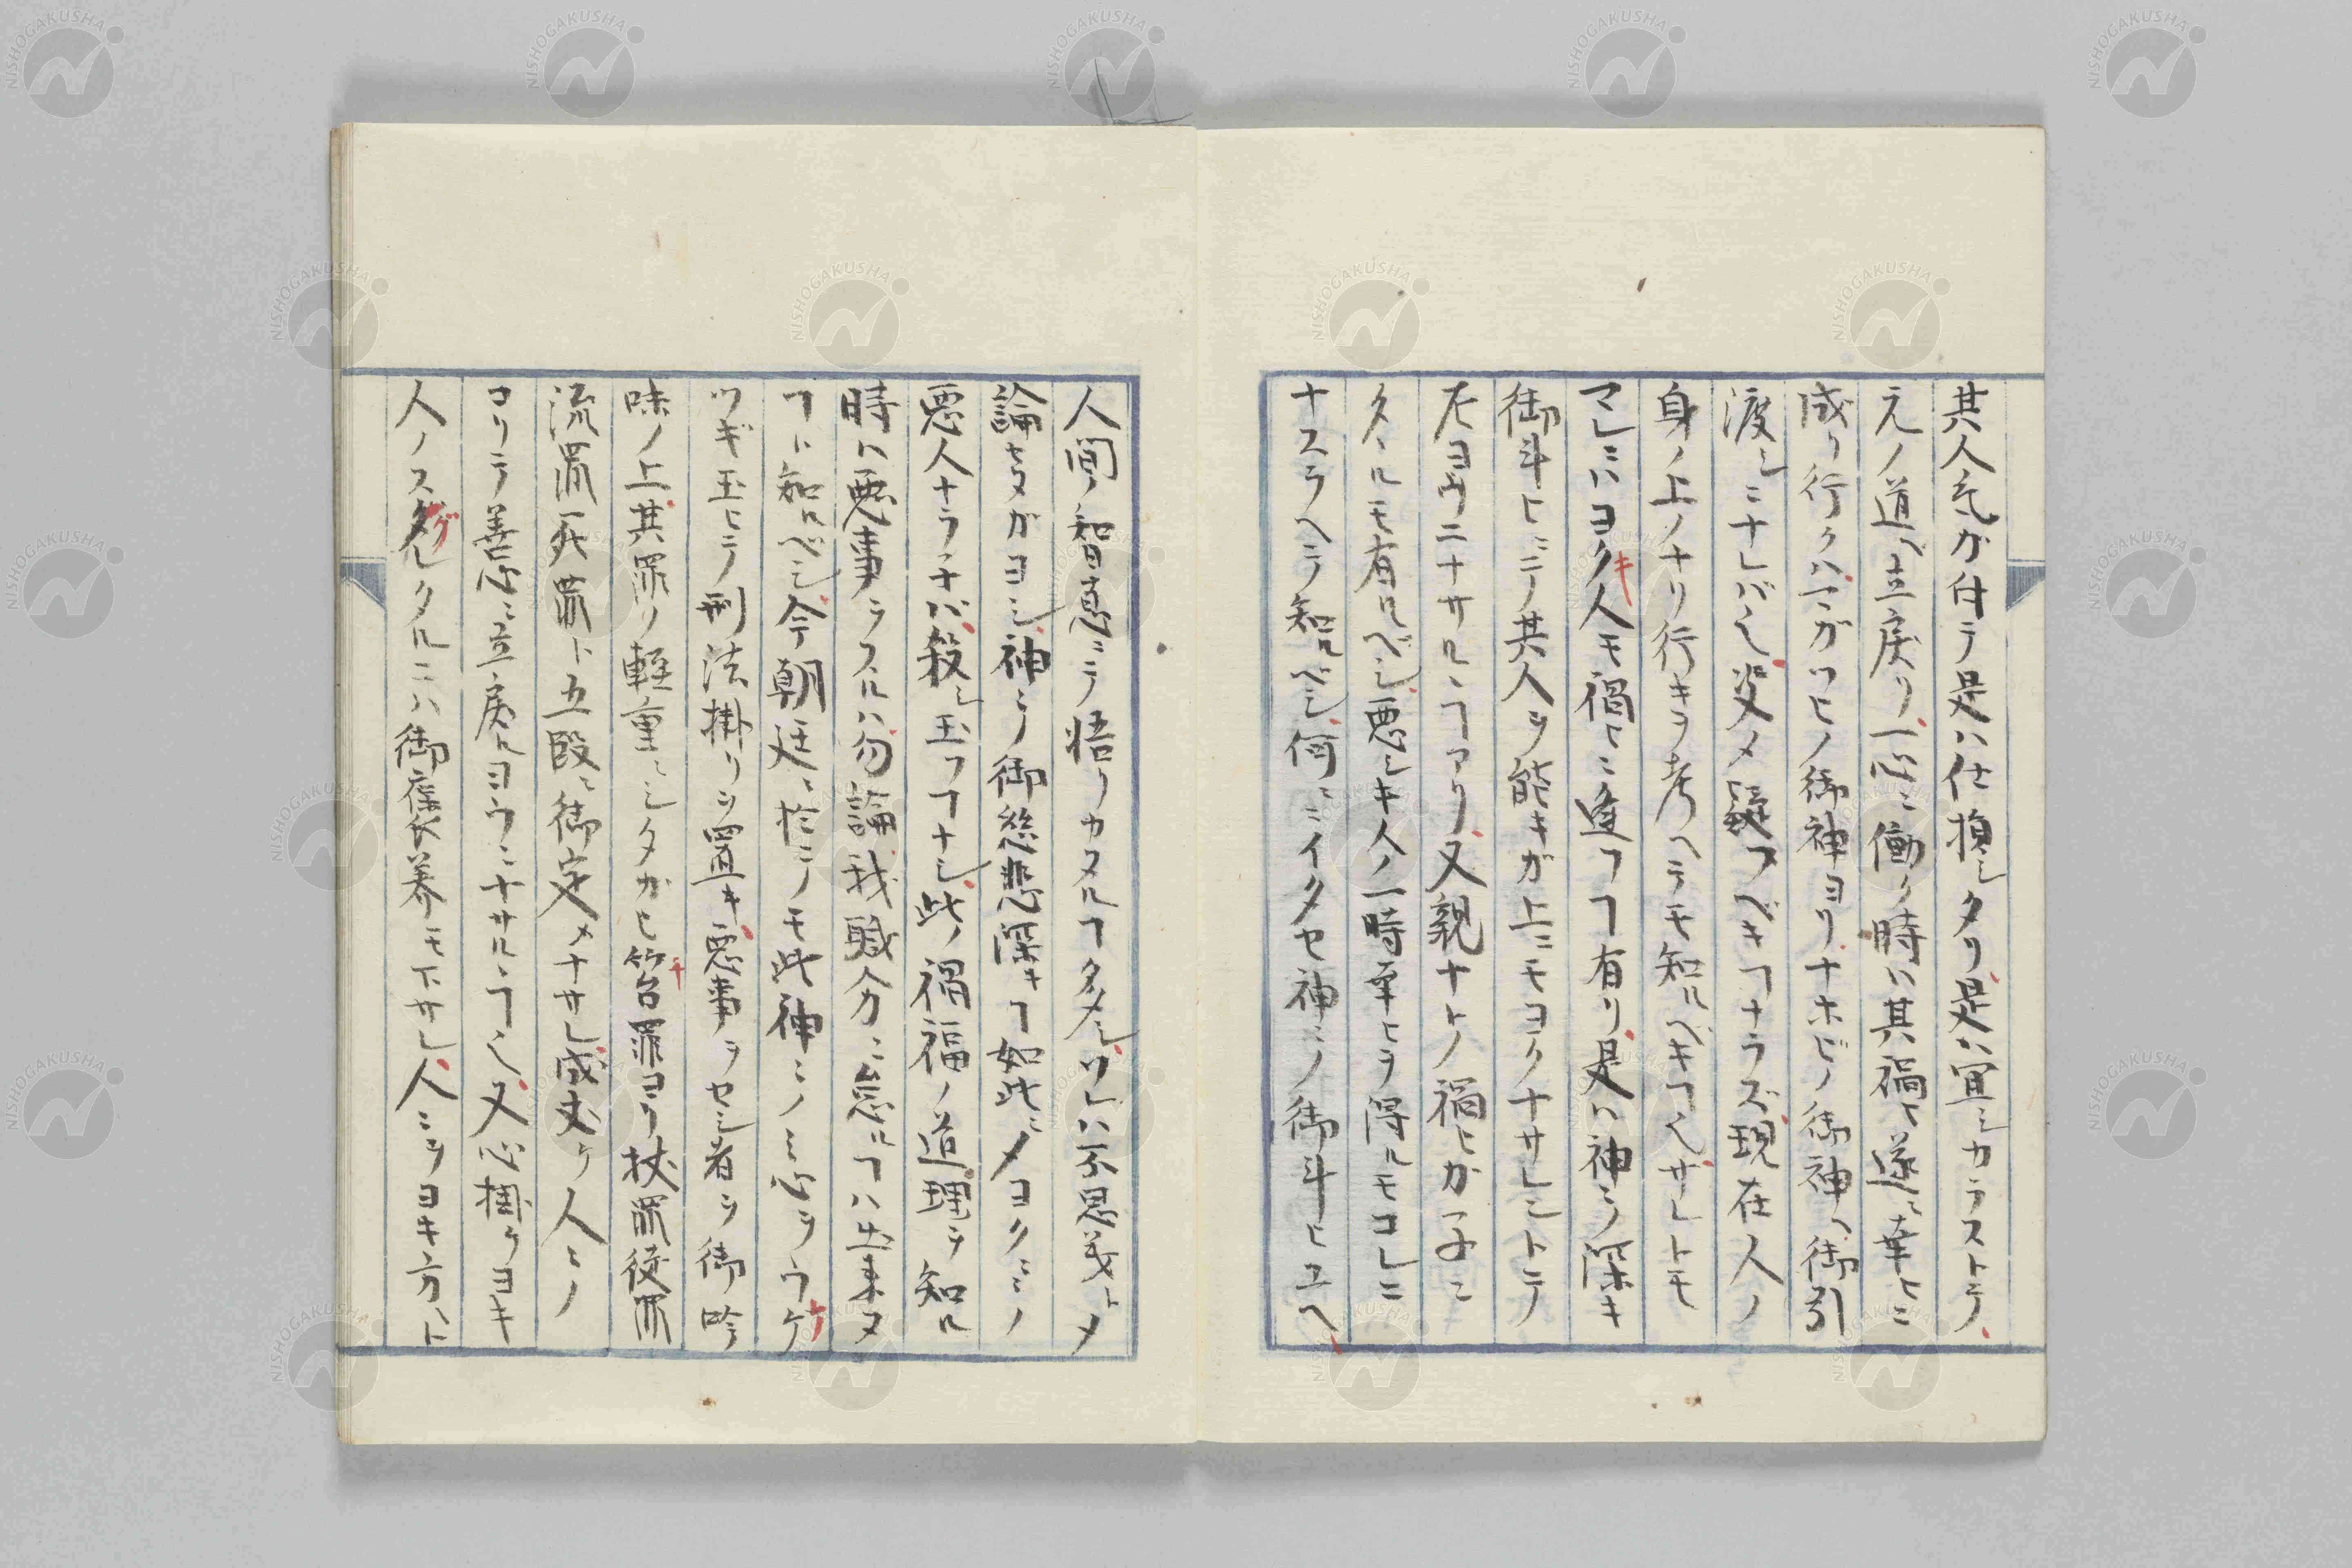 其人気が付テ是ハ仕損シタリ是ハ宜シカラストテ
元ノ道ヘ立戻リ一心ニ働ク時ハ其禍ヒ遂ニ幸ヒニ
成リ行クハマガツヒノ御神ヨリナホビノ御神ヘ御引
渡シニナレバ也努メ疑フベキヿナラズ現在人ノ
身ノ上ノナリ行キヲ考ヘテモ知ルベキヿ也サレトモ
マレニハヨキ人モ禍ヒニ逢フヿ有リ是ハ神ミノ深キ
御斗ヒニテ其人ヲ能キガ上ニモヨクナサレントテ
左ヨウニナサルヽヿアリ又親ナドノ禍ヒガ子ニ
クルモ有ルベシ悪シキ人ノ一時幸ヒヲ得ルモコレニ
ナスラヘテ知ルベシ何ニイタセ神ミノ御斗ヒユヘ
人間ノ智恵ニテ悟リカヌルヿ多シソレハ不思義トメ
論セヌガヨシ神ミノ御慈悲深キヿ如此ニメヨクミノ
悪人ナラデナバ殺シ玉フヿナシ此ノ禍福ノ道理ヲ知ル
時ハ悪事ヲスルハ勿論我職分ニ怠ルヿハ出来ヌ
ヿト知ルベシ今朝廷ニ於テモ此神ミノミ心ヲウケ
ツギ玉ヒテ刑法掛リヲ置キ悪事ヲセシ者ヲ御吟
味ノ上其罪ノ軽重ニシタカヒ笞罪ヨリ杖罪徒罪
流罪死罪ト五段ニ御定メナサレ成丈ケ人ミノ
コリテ善心ニ立戻ルヨウニナサルヽヿ也又心掛ケヨキ
人ノスグレタルニハ御褒美モ下サレ人ミヲヨキ方ヘト
NISHOGAKUSHA